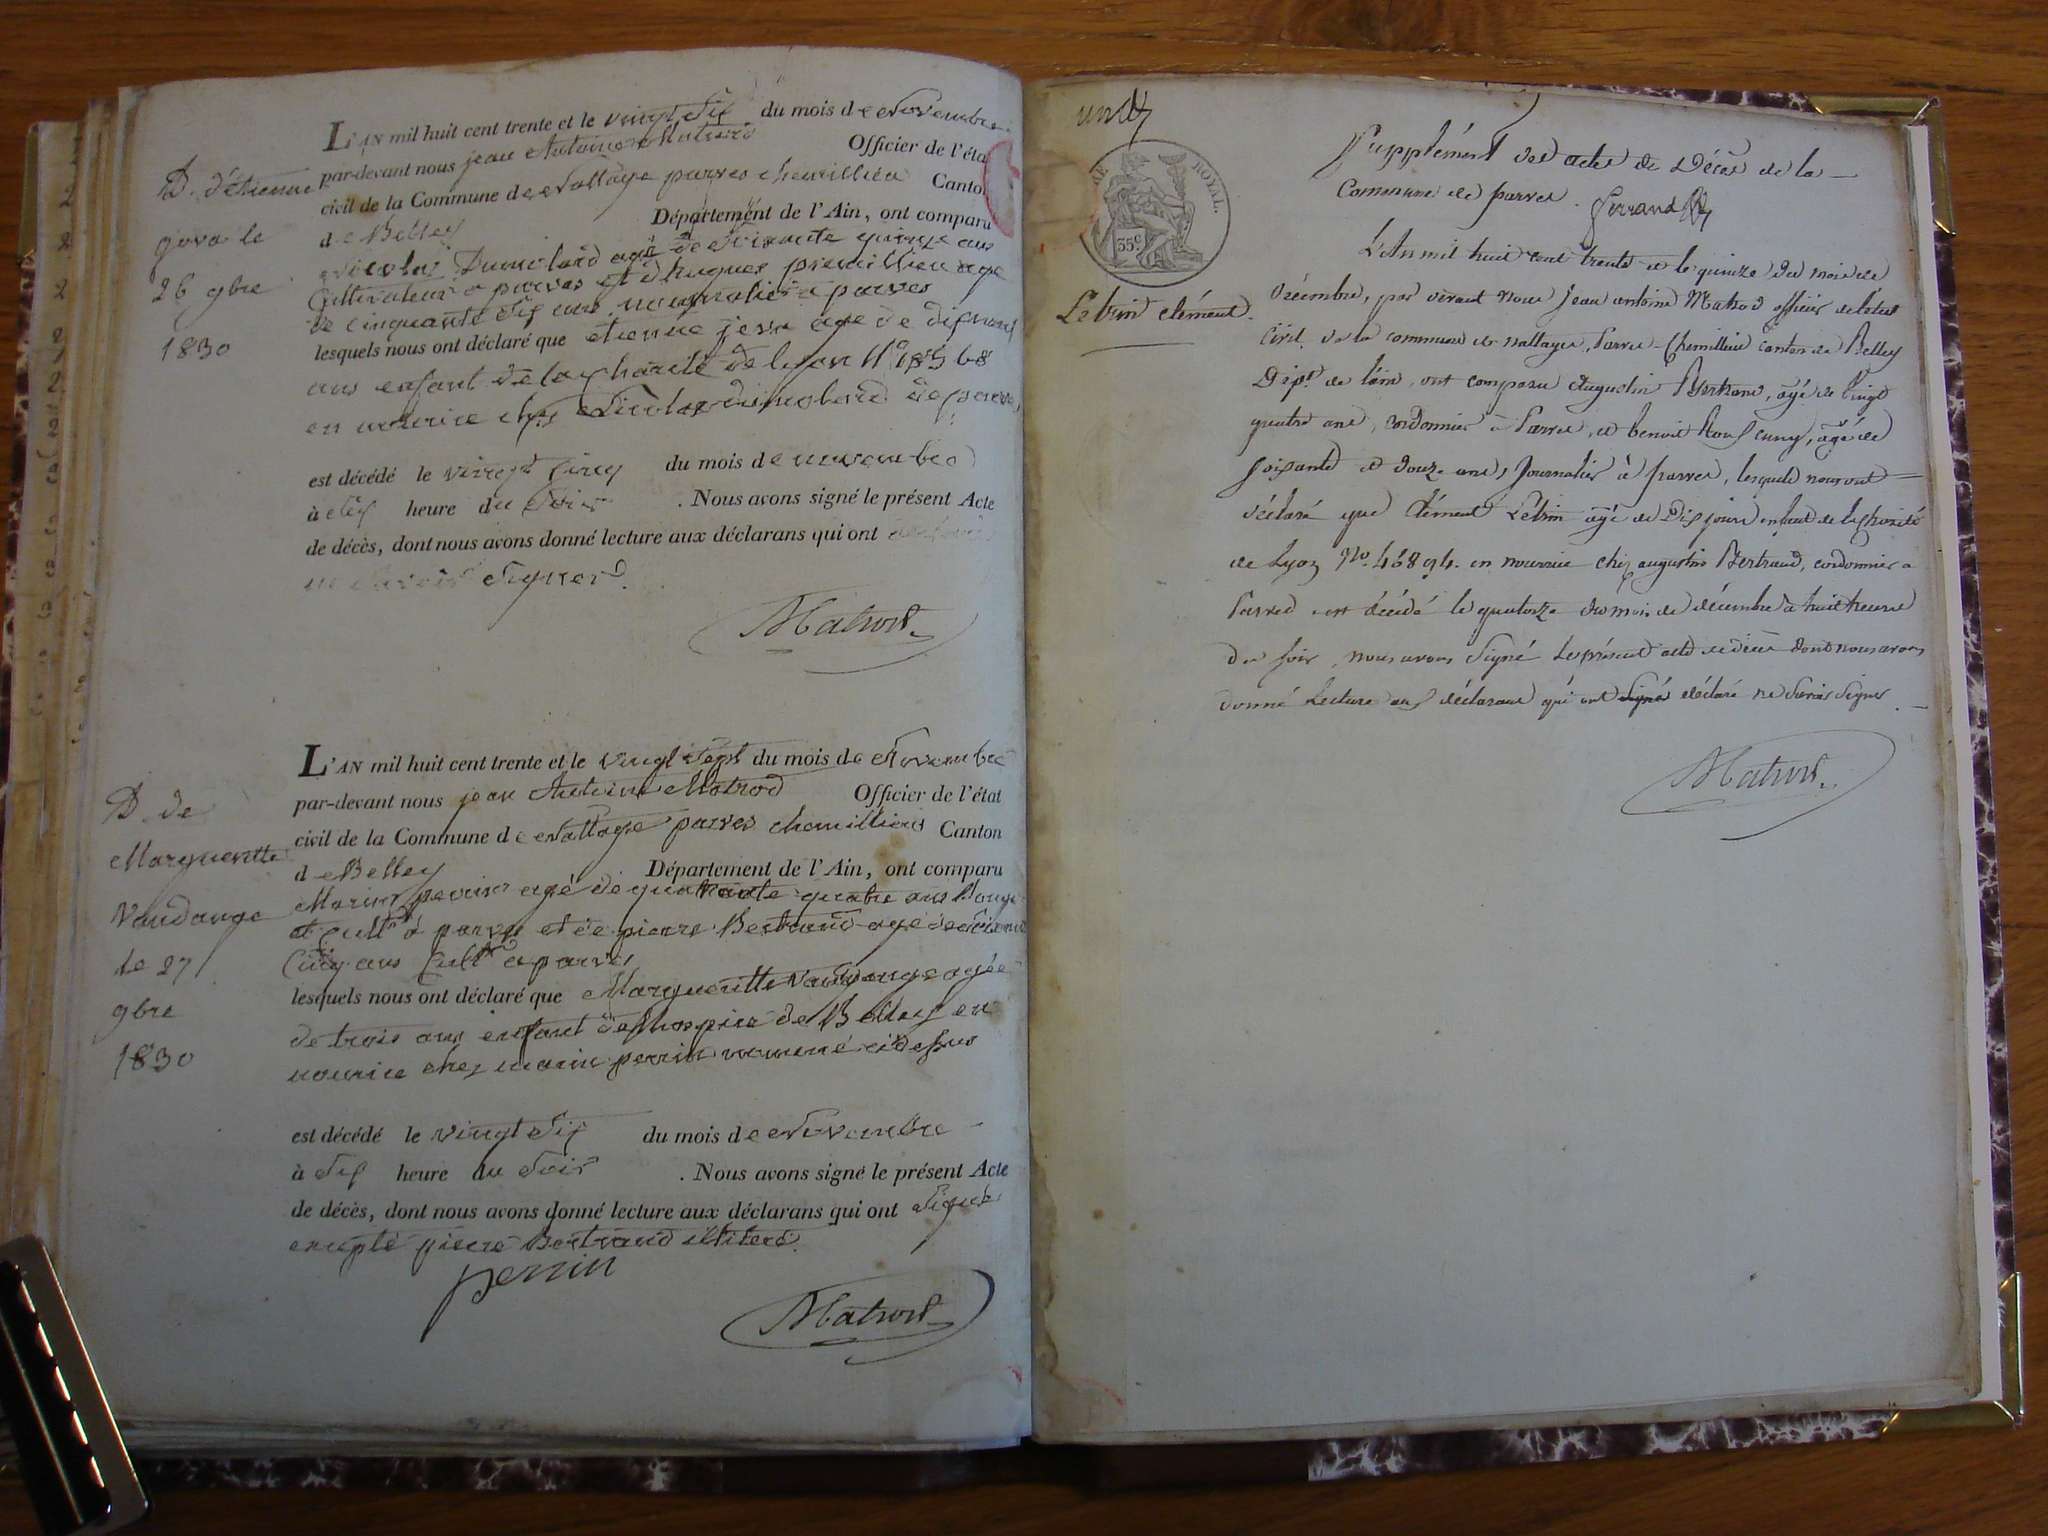 D. d'étienne
jova le
26 9bre
1830
L'AN mil huit cent trente et le vingt Six du mois de Novembre
par-devant nous jean Antoine Matrod Officier de l'éta
civil de la Commune de Nattage parves chemillieu Canton
de Belley Département de l'Ain, ont comparu
Nicolas Dumolard agé de Soixante quinze ans
Cultivateur a parves et d'hugues premillieu age
de Cinquante Six ans journalier a parves
lesquels nous ont déclaré que étienne jova age de
ans enfant de la Charité de lyon
en nourice chez Nicolas dumolard de parves
est décédé le vingt Cinq du mois de novembre
à heure du Soir . Nous avons signé le présent Acte
de décès, dont nous avons donné lecture aux déclarans qui ont declaré
ne Savoir Signer
Matrod
D. de
Margueritte
Vaudange
le 27
9bre
1830
L'AN mil huit cent trente et le vingt Sept du mois de Novembre
par-devant nous jean Antoine Matrod Officier de l'état
civil de la Commune de Nattage parves chemillieu Canton
de Belley Département de l'Ain, ont comparu
Marin perrin agé de quarante quatre ans
et Cultr a parves et de pierre Bertrand agé de
Cinq ans Cultr a parves
lesquels nous ont déclaré que Margueritte Vaudange agée
de trois ans enfant de lhospice de Belley en
nourice chez marin perrin nommé cidessus
est décédé le vingt Six du mois de Novembre
à Six heure du Soir . Nous avons signé le présent Acte
de décès, dont nous avons donné lecture aux déclarans qui ont Signé
excepté pierre Bertrand illiteré.
perrin
Matrod
ROYAL.
35c
Supplément des actes de Décès de la
Commune de parves. Ferrand
Lebrin clément.
L'An mil huit cent trente et le quinze du mois de
décembre, par devant nous Jean antoine Matrod officier de létat
Civil de la commune de nattages, Parves-Chemillieu canton de Belley
Dépt de lain, ont comparu Augustin Bertrand, agé de vingt
quatre ans, cordonnier à Parves, et benoit agé de
soixante et douze ans, journalier à parves, lesquels nous ont
déclaré que Clément Lebrin agé de Dix jours enfant de la charité
de Lyon No. 46894. en nourrice chez augustin Bertrand, cordonnier a
Parves est décédé le quatorze du mois de décembre a huit heures
du soir, nous avons signé Le présent acte de décès dont nous avons
donné Lecture aux déclarans qui ont signé déclaré ne savoir signer.
Matrod